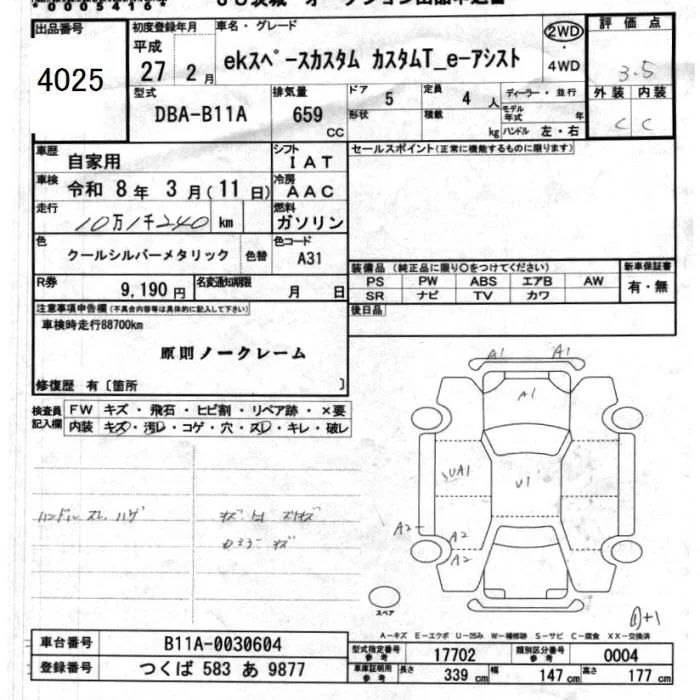 出品番号 4025
初度登録年月 平成 27 年 2 月
車名・グレード ekスペースカスタム カスタムT_e-アシスト
2WD ・ 4WD
評価点 3.5
外装 C 内装 C
型式 DBA-B11A
排気量 659 CC
ドア 5 形状
定員 4 人 積載 kg
ディーラー・並行
モデル年式 年
ハンドル 左・右
車歴 自家用
シフト IAT
車検 令和 8 年 3 月 ( 11 日)
冷房 AAC
走行 10万1千240 km
燃料 ガソリン
色 クールシルバーメタリック 色替
色コード A31
R券 9,190 円
名変通知期限 月 日
セールスポイント(正常に機能するものに限ります)
装備品 (純正品に限り○をつけてください)
新車保証書 有・無
PS PW ABS エアB AW
SR ナビ TV カワ
後日品
注意事項申告欄 (不具合内容等は具体的に記入して下さい)
車検時走行88700km
原則ノークレーム
修復歴 有〔箇所 〕
検査員記入欄
FW キズ・飛石・ヒビ割・リペア跡・×要
内装 キズ・汚レ・コゲ・穴・スレ・キレ・破レ
ハンドル スレ ハゲ
A1 A1
A1
UA1
U1
A2
A2
A2
スペア
A-キズ E-エクボ U-凹み W-補修跡 S-サビ C-腐食 XX-交換済
車台番号 B11A-0030604
登録番号 つくば 583 あ 9877
型式指定番号 参考 17702
類別区分番号 参考 0004
車庫証明用 参考 長さ 339 cm 幅 147 cm 高さ 177 cm